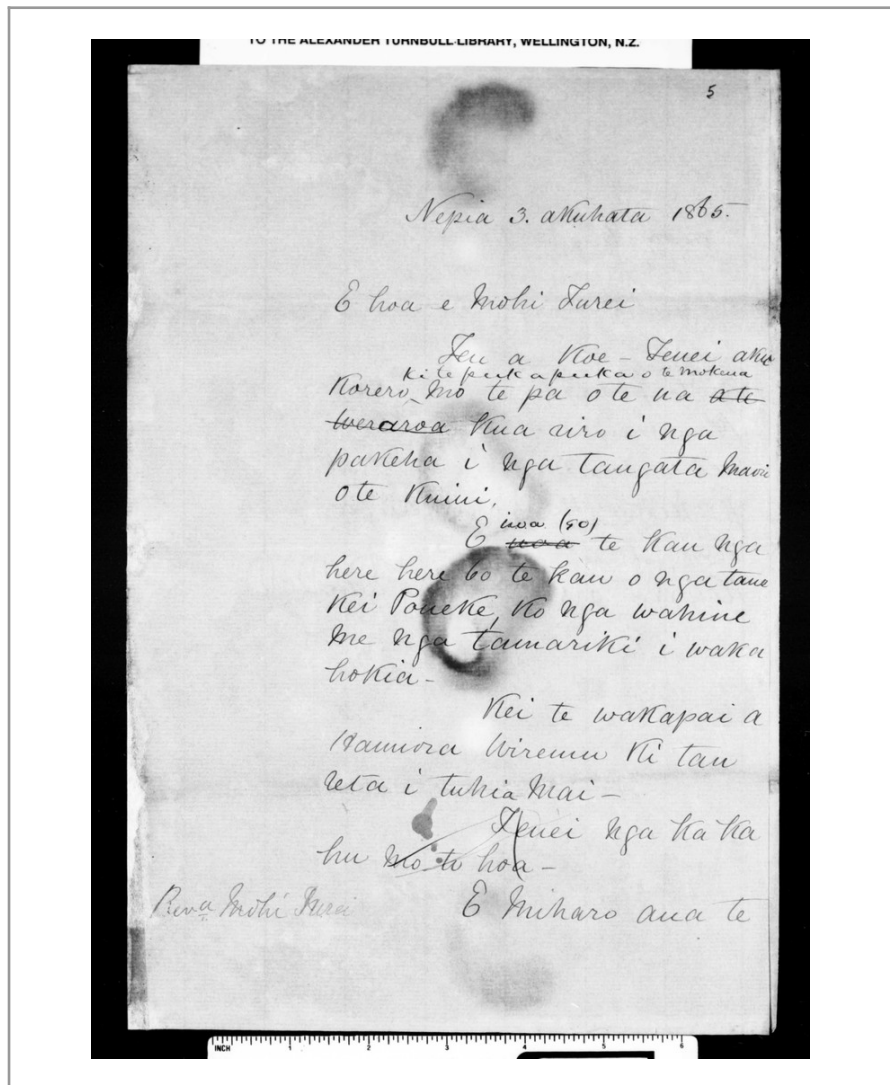 TO THE ALEXANDER TURNBULL LIBRARY, WELLINGTON, N.Z.
5
Nepia 3. akuhata 1865.
E hoa e Mohi Turei
Ten a Koe - Tenei aku
ki te pukapuka o te Mokena
Korero, mo te pa o te ua o te
weraroa Kua riro i nga
pakeha i nga tangata Maori
o te Kuini.
inoa (50)
E te kau nga
here here 60 te kau o nga tane
Kei Poneke, Ko nga wahine
me nga tamariki i waka
hokia -
Kei te wakapai a
Hamiora Wiremu Ki tau
reta i tuhia Mai -
Tenei nga ka ka
hu mo to hoa -
Reva Mohi Turei
E Miharo ana te
INCH 1 2 3 4 5 6